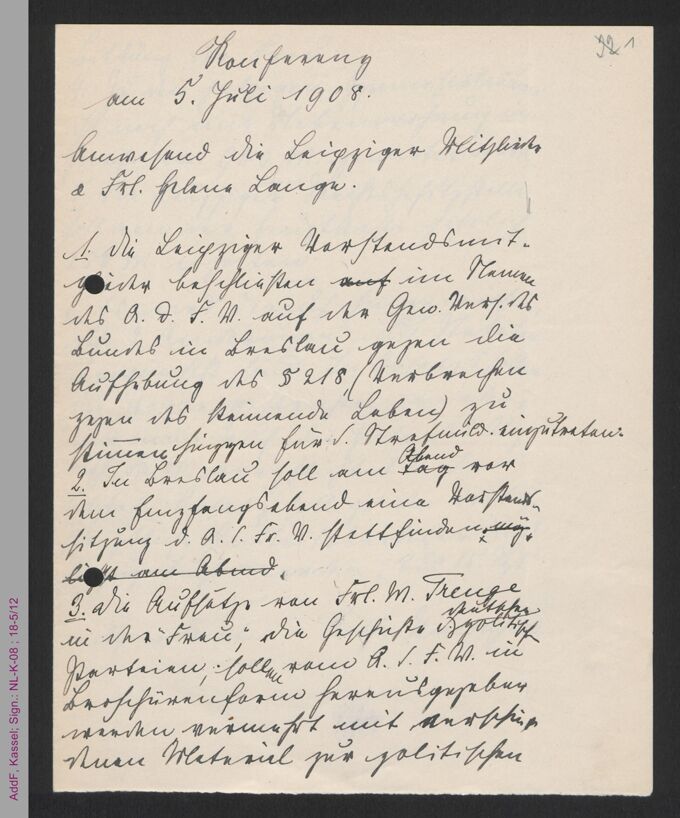 32 1
Konferenz
am 5. Juli 1908.
Anwesend die Leipziger Mitglieder
& Frl. Helene Lange.
1. Die Leipziger Vorstandsmit-
glieder beschließen auf im Namen
des A. D. F. V. auf der Gen. Vers. des
Bundes in Breslau gegen die
Aufhebung des § 218 (Verbrechen
gegen das keimende Leben) zu
stimmen hingegen für d. Strafmild. einzutreten.
2. In Breslau soll am Tag Abend vor
dem Empfangsabend eine Vorstands-
sitzung d. A. D. Fr. V. stattfinden, mög-
lichst am Abend.
3. Die Aufsätze von Frl. W. Trenge
in der "Frau", die Geschichte d. politisch
Parteien, sollen vom A. D. F. V. in
Broschürenform herausgegeben
werden vermehrt mit verschie-
denen Material zur politischen
AddF, Kassel; Sign.: NL-K-08 ; 18-5/12